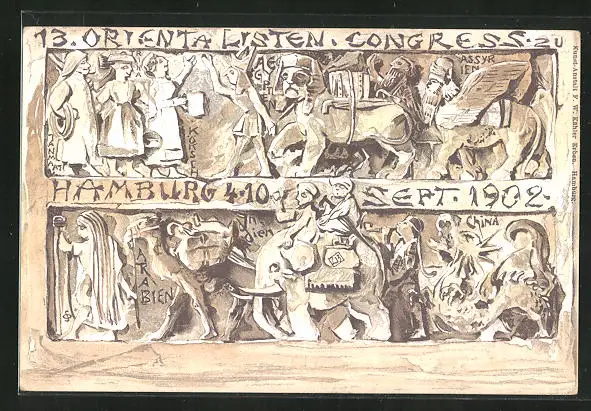 13. ORIENTALISTEN. CONGRESS. ZU
ASSYR
IEN
HAMBURG 4.10 SEPT. 1902.
In
dien
CHINA
ARABIEN
Kunst-Anstalt F. W. Kähler Erben. Hamburg.